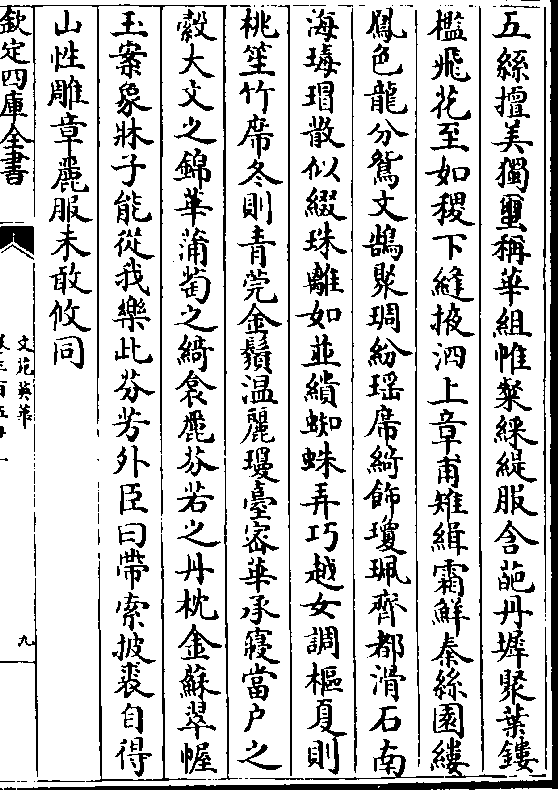 五絲擅美獨璽稱華組帷粲綵緹服含葩丹墀聚葉鏤
檻飛花至如稷下縫掖泗上章甫雉緝霜鮮秦絲園縷
鳳色龍分鴛文鵠聚琱紛瑶席綺飾瓊珮齊都滑石南
海瑇瑁散似綴珠離如並繢蜘蛛弄巧越女調樞夏則
桃笙竹席冬則青莞金鬚温麗瓊臺宻華承寢當户之
縠大文之錦華蒲萄之綺衾麗芬若之丹枕金蘇翠幄
玉案象牀子能從我樂此芬芳外臣曰帶索披裘自得
山性雕章麗服未敢攸同
欽定四庫全書
文苑英華
九